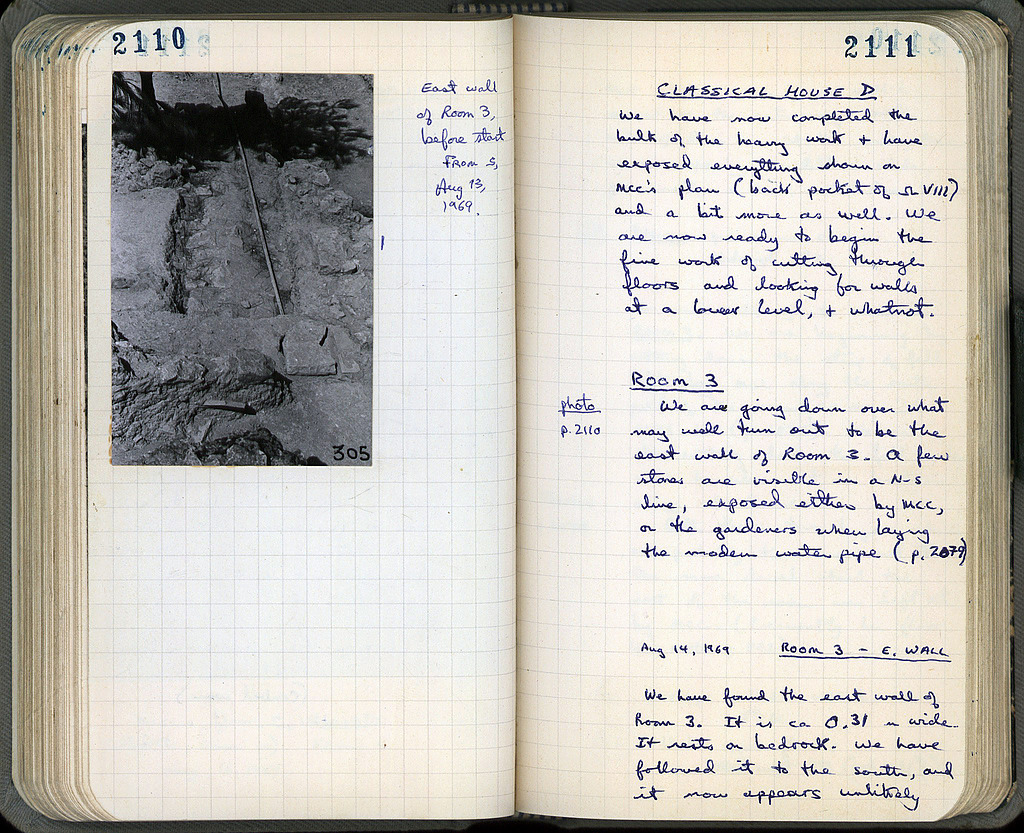 2110
East wall
of Room 3,
before start
From S,
Aug 13,
1969.
305
2111
CLASSICAL HOUSE D
We have now completed the
bulk of the heavy work + have
exposed everything shown on
McC's plan (back pocket of VIII)
and a bit more as well. We
are now ready to begin the
fine work of cutting through
floors and looking for walls
at a lower level, + whatnot.
ROOM 3
photo
p. 2110
We are going down over what
may well turn out to be the
east wall of Room 3. A few
stones are visible in a N-S
line, exposed either by McC,
or the gardeners when laying
the modern water pipe (p. 2079)
Aug 14, 1969 ROOM 3 - E. WALL
We have found the east wall of
Room 3. It is ca 0.31 m wide.
It rests on bedrock. We have
followed it to the south, and
it now appears unlikely